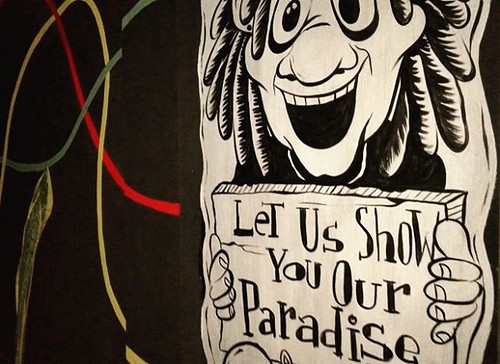 Let Us Show
You Our
Paradise